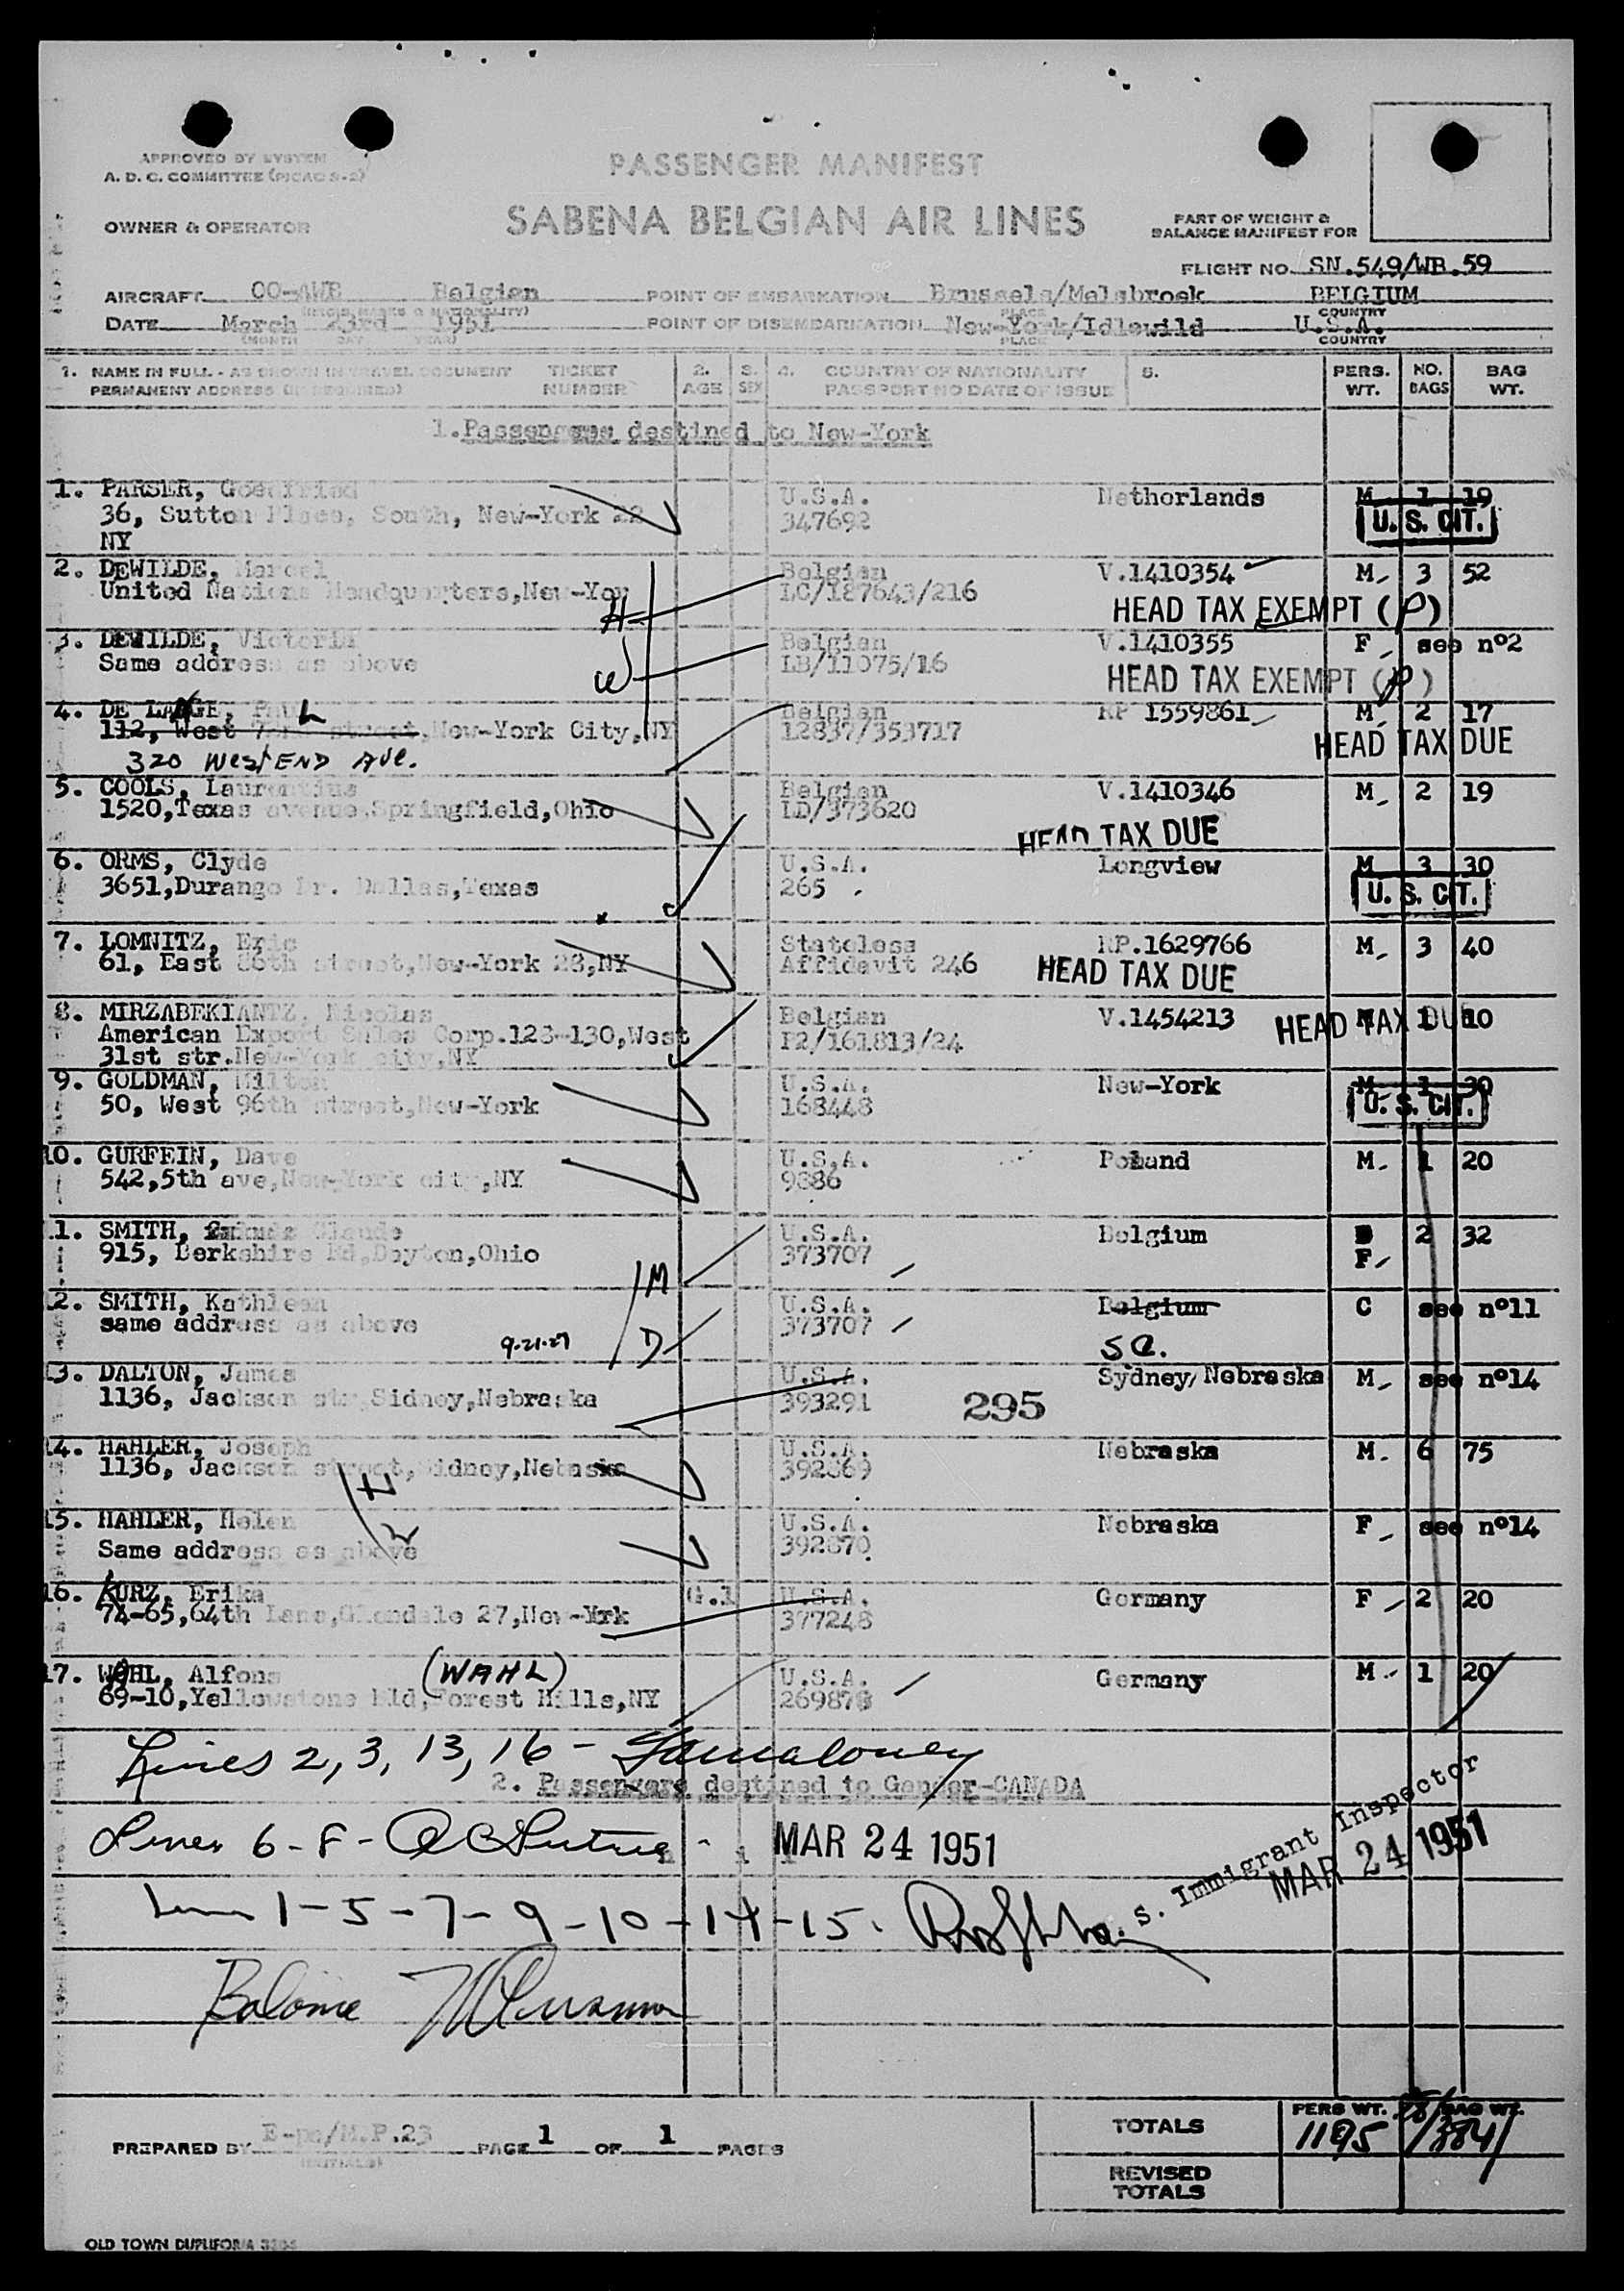 APPROVED BY SYSTEM
A. D. C. COMMITTEE (PICAO S-2)
PASSENGER MANIFEST
OWNER & OPERATOR
SABENA BELGIAN AIR LINES
PART OF WEIGHT &
BALANCE MANIFEST FOR
FLIGHT NO. SN.549/WB.59
AIRCRAFT OO-AWB Belgian POINT OF EMBARKATION Brussels/Melsbroek BELGIUM
PLACE COUNTRY
DATE March 23rd 1951 POINT OF DISEMBARKATION New-York/Idlewild U.S.A.
(MONTH DAY YEAR) PLACE COUNTRY
1. NAME IN FULL - AS SHOWN IN TRAVEL DOCUMENT TICKET 2. 3. 4. COUNTRY OF NATIONALITY 5. PERS. NO. BAG
PERMANENT ADDRESS (IF REQUIRED) NUMBER AGE SEX PASSPORT NO DATE OF ISSUE WT. BAGS WT.
1.Passengers destined to New-York
1. PARSER, U.S.A. Netherlands M 1 19
36, Sutton Place, South, New-York 22 347692 U. S. CIT.
NY
2. DEWILDE, Marcel Belgian V.1410354 M 3 52
United Nations Headquarters,New-Yor LC/187643/216
H HEAD TAX EXEMPT (P)
3. DEWILDE, Victoria Belgian V.1410355 F see nº2
Same address as above LB/11075/16
W HEAD TAX EXEMPT (P)
4. DE LANGE, Paul Belgian RP 1559861 M 2 17
112, West street,New-York City,NY 12837/353717 HEAD TAX DUE
320 West END Ave.
5. COOLS, Laurentius Belgian V.1410346 M 2 19
1520,Texas avenue,Springfield,Ohio LD/373620
HEAD TAX DUE
6. ORMS, Clyde U.S.A. Longview M 3 30
3651,Durango Dr. Dallas,Texas 265 U. S. CIT.
7. LOMNITZ, Eric Stateless RP.1629766 M 3 40
61, East 86th street,New-York 28,NY Affidavit 246 HEAD TAX DUE
8. MIRZABEKIANTZ, Nicolas Belgian V.1454213 HEAD TAX DUE M 1 10
American Export Sales Corp.128-130,West P2/161813/24
31st str.New-York city,NY
9. GOLDMAN, Milton U.S.A. New-York M 1 30
50, West 96th street,New-York 168448 U. S. CIT.
10. GURFEIN, Dave U.S.A. Poland M 1 20
542,5th ave,New-York city,NY 9886
11. SMITH, Claude U.S.A. Belgium 2 32
915, Berkshire Rd,Dayton,Ohio 373707 F
M
12. SMITH, Kathleen U.S.A. Belgium C see nº11
same address as above 373707
9-21-27 D S C.
13. DALTON, James U.S.A. Sydney, Nebraska M see nº14
1136, Jackson str,Sidney,Nebraska 393291 295
14. HAHLER, Joseph U.S.A. Nebraska M 6 75
1136, Jackson street,Sidney,Nebraska 392869
H
15. HAHLER, Helen U.S.A. Nebraska F see nº14
Same address as above 392870
W
16. KURZ, Erika G.1 U.S.A. Germany F 2 20
74-65,64th Lane,Glendale 27,New-Yrk 377248
17. WAHL, Alfons (WAHL) U.S.A. Germany M 1 20
69-10,Yellowstone Bld,Forest Hills,NY 269878
Lines 2, 3, 13, 16 -
2. Passengers destined to Gander-CANADA
Lines 6 - 8 -
MAR 24 1951
S. Immigrant Inspector
MAR 24 1951
Lines 1-5-7-9-10-14-15.
Balance
PREPARED BY PAGE 1 OF 1 PAGES
TOTALS PERS WT. BAG WT.
1195 384
REVISED
TOTALS
OLD TOWN DUPLIFORM